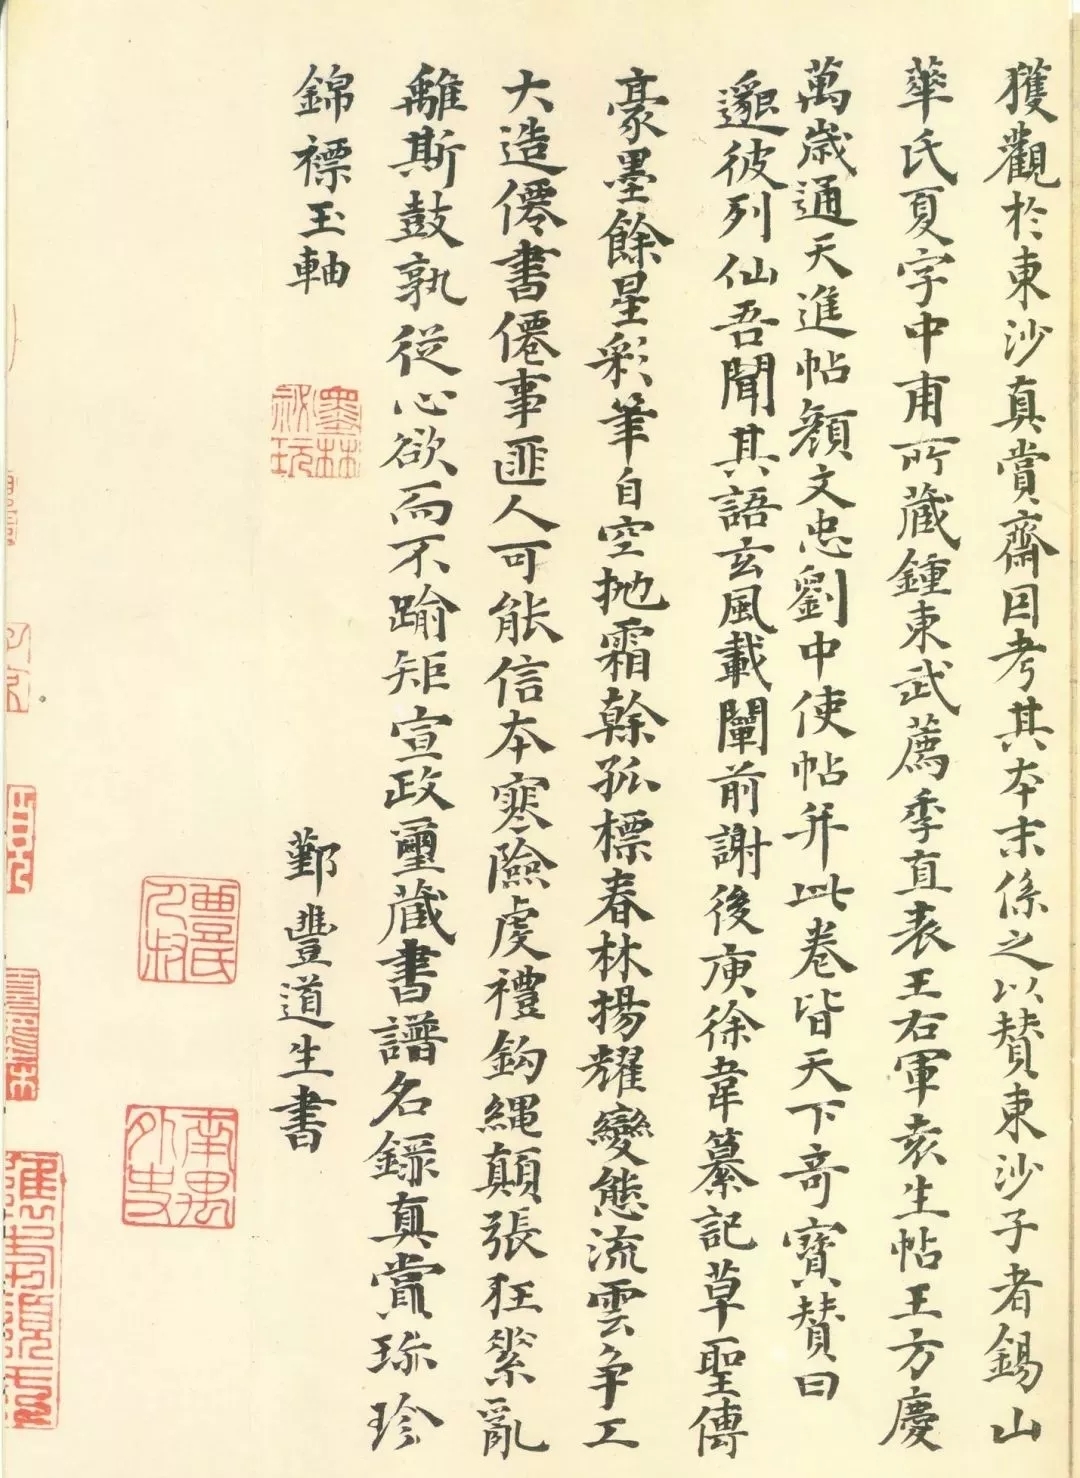 獲觀於東沙真賞齋因考其本末係之以賛東沙子者錫山
華氏夏字中甫所藏鍾東武薦季直表王右軍袁生帖王方慶
萬歲通天進帖顏文忠劉中使帖并此卷皆天下奇寶賛曰
邈彼列仙吾聞其語玄風載闡前謝後庾徐韋纂記草聖傳
豪墨餘星彩筆自空拋霜榦孤標春林揚耀變態流雲爭工
大造僊書僊事匪人可能信本寒險虔禮鈎繩顛張狂縈亂
離斯鼓孰從心欲而不踰矩宣政璽藏書譜名錄真賞珎珍
錦褾玉軸
鄞豐道生書
墨林祕玩
豐氏人叔
南禺外史